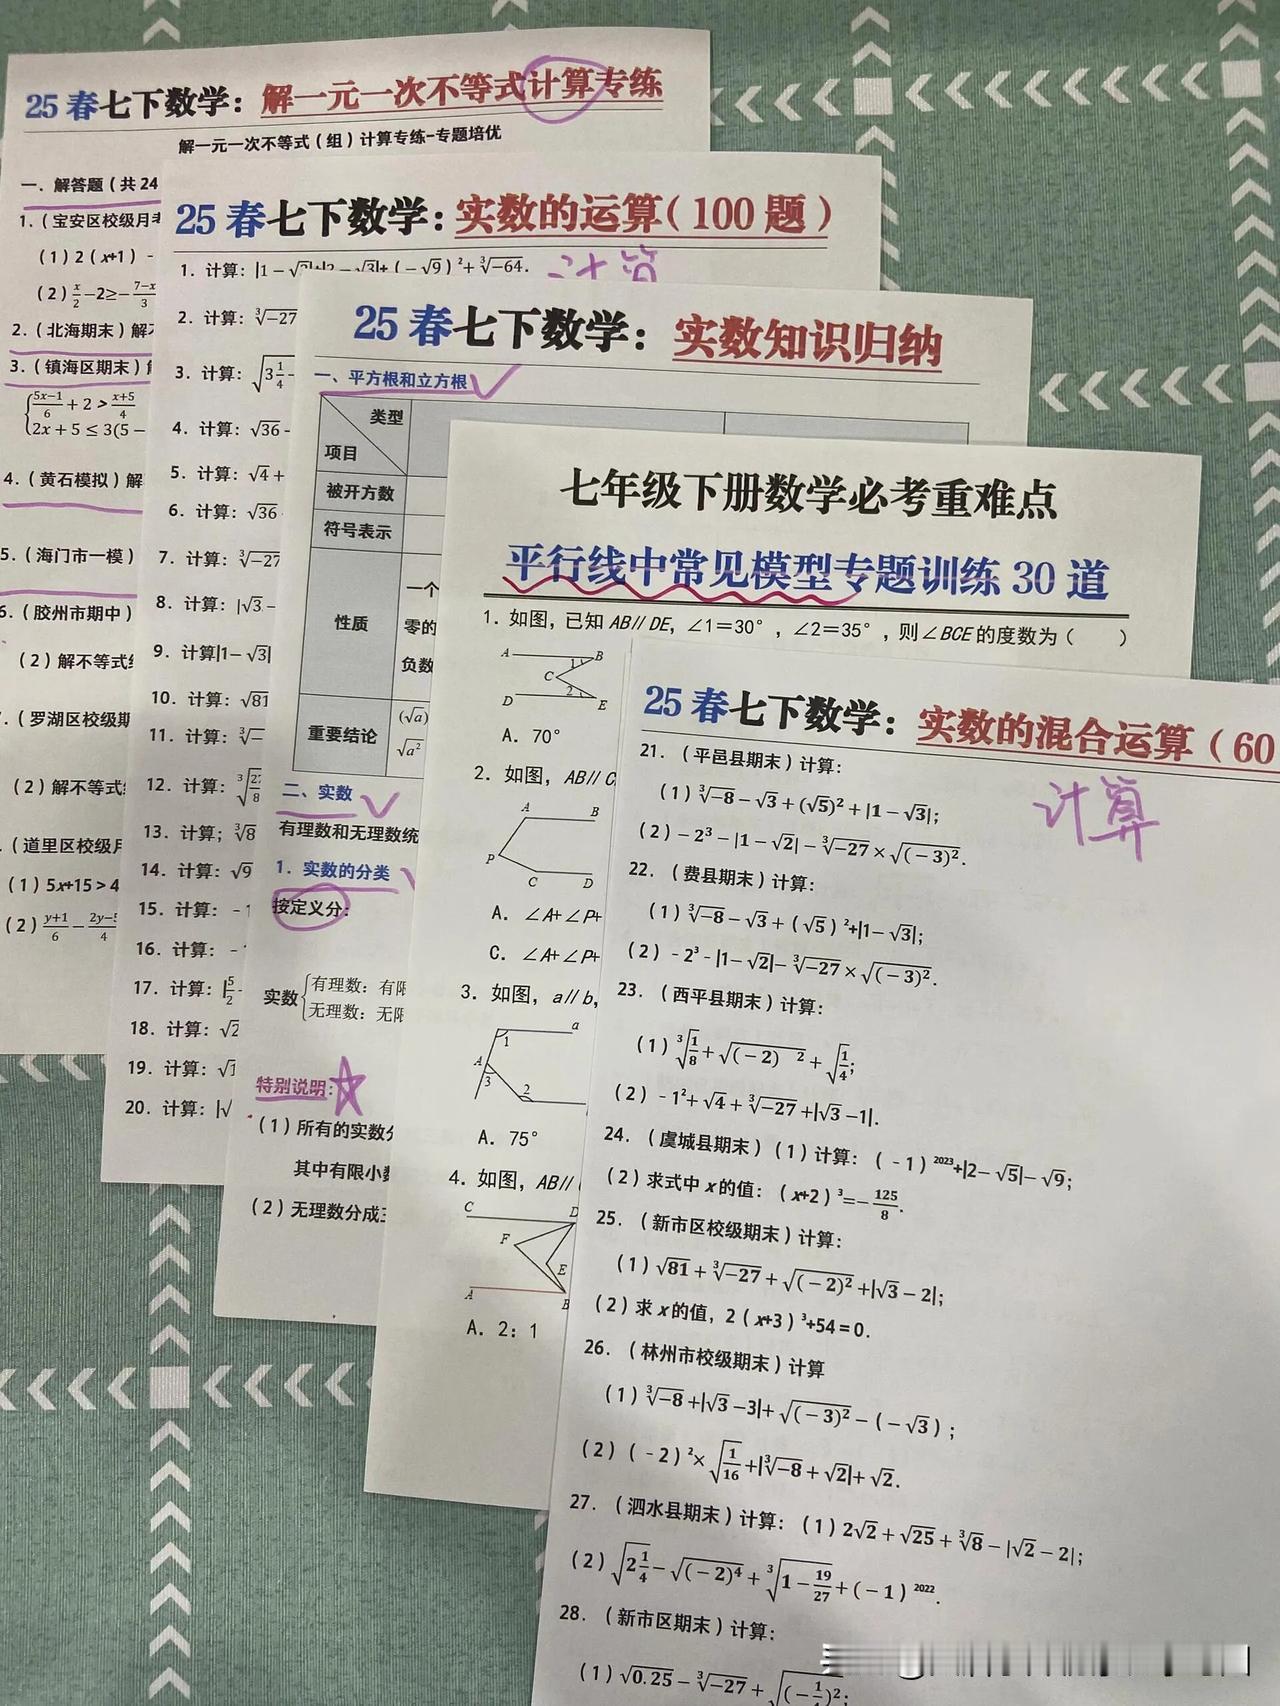 25 春七下数学：解一元一次不等式计算专练
解一元一次不等式（组）计算专练-专题培优
一．解答题（共24
1.（宝安区校级月考
（1）2（x+1）-
（2）x/2－2≥－(7-x)/3
2.（北海期末）解
3.（镇海区期末）
{(5x-1)/6 + 2 > (x+5)/4
2x + 5 ≤ 3(5 −
4.（黄石模拟）解
5.（海门市一模）
6.（胶州市期中）
（2）解不等式
.（罗湖区校级期
（2）解不等式
.（道里区校级月
（1）5x+15＞4
（2）(y+1)/6 − (2y-5)/4
25 春七下数学：实数的运算（100 题）
1. 计算：|1 − √2|+|2 − √3|+（−√9）²+ ³√−64.
计算
2. 计算：³√−27
3. 计算：√(3 1/4) -
4. 计算：√36 -
5. 计算：√4 +
6. 计算：√36
7. 计算：³√−27
8. 计算：|√3 -
9. 计算|1− √3|
10. 计算：√81
11. 计算：³√−
12. 计算：³√(27/8
13. 计算；³√8
14. 计算：√9
15. 计算：-
16. 计算：-
17. 计算：|5/2 -
18. 计算：√2
19. 计算：√1
20. 计算：|√
25 春七下数学：实数知识归纳
一、平方根和立方根
类型
项目
被开方数
符号表示
性质
一个
零的
负数
重要结论
(√a)
√a²
二、实数
有理数和无理数统
1. 实数的分类
按定义分：
实数{有理数：有限
无理数：无限
特别说明：
（1）所有的实数分
其中有限小数
（2）无理数分成三
七年级下册数学必考重难点
平行线中常见模型专题训练 30 道
1. 如图，已知 AB∥DE，∠1＝30°，∠2＝35°，则∠BCE 的度数为（　　）
A B C D E 1 2
A. 70°
2. 如图，AB∥C
A B P C D
A. ∠A+∠P+
C. ∠A+∠P+
3. 如图，a∥b，
a 1 A 3 2
A. 75°
4. 如图，AB∥
C D F E A B
A. 2：1
25 春七下数学：实数的混合运算（60
计算
21.（平邑县期末）计算：
（1）³√−8 − √3 + (√5)² + |1 − √3|；
（2）− 2³ − |1 − √2| − ³√−27 × √(−3)².
22.（费县期末）计算：
（1）³√−8 − √3 +（√5）²+|1− √3|；
（2）- 2³ - |1− √2|− ³√−27 × √(−3)².
23.（西平县期末）计算：
（1）³√(1/8) + √(−2)² + √(1/4)；
（2）- 1²+ √4 + ³√−27 +|√3 −1|.
24.（虞城县期末）（1）计算：（- 1）²⁰²³+|2− √5|− √9；
（2）求式中 x 的值：（x+2）³=− 125/8.
25.（新市区校级期末）计算：
（1）√81 + ³√−27 + √(−2)² +|√3 − 2|；
（2）求 x 的值，2（x+3）³+54＝0.
26.（林州市校级期末）计算
（1）³√−8 +|√3 −3|+ √(−3)² −（−√3）；
（2）（- 2）²× √(1/16) +|³√−8 + √2|+ √2.
27.（泗水县期末）计算：（1）2√2 + √25 + ³√8 − |√2 − 2|；
（2）√(2 1/4) − √(−2)⁴ + ³√(1 − 19/27) +（−1）²⁰²².
28.（新市区期末）计算：
（1）√0.25 − ³√−27 + √(−1/4)²；